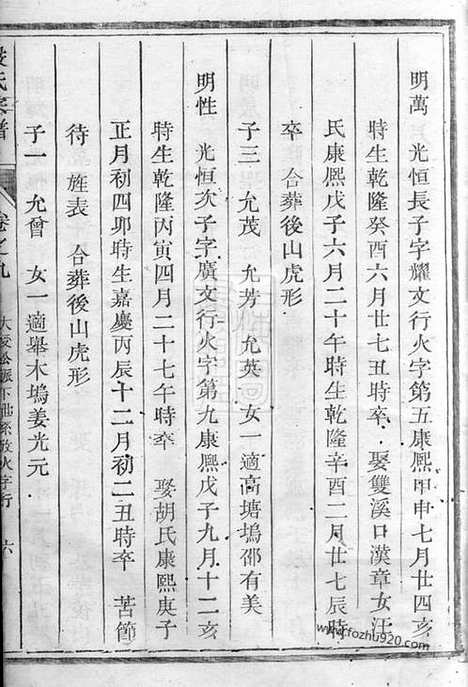 明萬 光恒長子字耀文行火字第五康熈甲申七月廿四亥
時生乾隆癸酉六月廿七丑時卒娶雙溪口漢章女汪
氏康熈戊子六月二十午時生乾隆辛酉二月廿七辰時
卒 合葬後山虎形
子三 允茂 允芳 允英 女一適高塘塢邵有美
明性 光恒次子字廣文行火字第九康熈戊子九月十二亥
時生乾隆丙寅四月二十七午時卒 娶胡氏康熙庚子
正月初四卯時生嘉慶丙辰十二月初二丑時卒 苦節
待旌表 合葬後山虎形
子一 允曾 女一適舉木塢姜光元
氏宗譜
卷之九
火字行
六
www.fozhu920.com